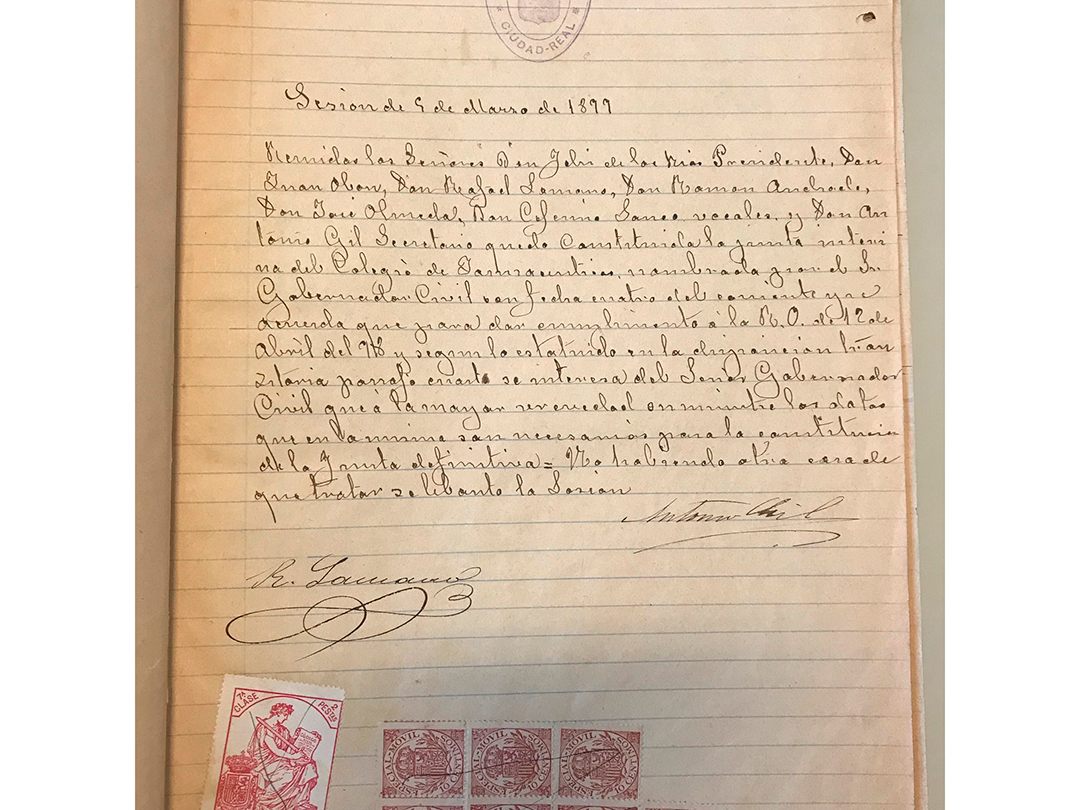 CIUDAD-REAL
Sesion de 5 de Marzo de 1899
Reunidos los Señores Don Felix de los Rios Presidente, Don
Juan Obon, Don Rafael Lamano, Don Ramon Andrade,
Don José Olmeda, Don Ceferino Sauco vocales, y Don An
tonio Gil Secretario quedo Constituida la junta interi
na del Colegio de Farmaceuticos, nombrada por el Sr.
Gobernador Civil con fecha cuatro del corriente y se
acuerda que para dar cumplimento á la R. O. de 12 de
Abril del 98 y segun lo estatuido en la disposicion tran
sitoria parrafo cuarto se interesa del Señor Gobernador
Civil que á la mayor brevedad suministre los datos
que en la misma son necesarios para la constitucion
de la Junta definitiva = No habiendo otra cosa de
que tratar se libanto la Sesion
Antonio Gil
R. Lamano
7ª CLASE 2 PESTAS
ESPECIAL MOVIL 10 CENT
ESPECIAL MOVIL 10 CENT
ESPECIAL MOVIL 10 CENT